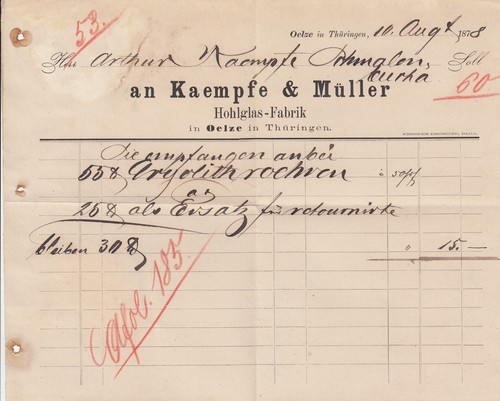 53.
Oelze in Thüringen, 10. Augst 1878
Herr Arthur Kaempfe Soll
60
an Kaempfe & Müller
Hohlglas-Fabrik
in Oelze in Thüringen.
Sie empfangen anbei
55 ℔ Cryolithroehren à 50 pf
25 ℔ als Ersatz für retournirte
bleiben 30 ℔ " 15.—
fol. 185.